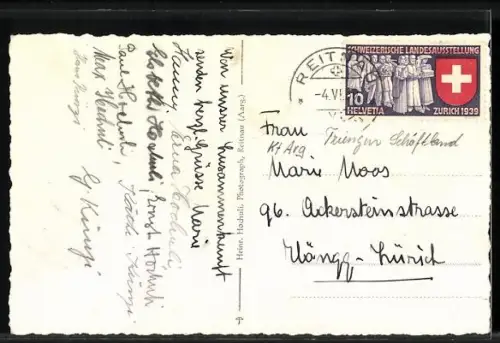 Von unserer Zusammenkunft
senden herzl. Grüsse Marie
Hanny Erna Hochuli
Hochuli, Ernst Hochuli
Paul Hochuli,
Max Hochuli
Heinr. Hochuli, Photograph, Reitnau (Aarg.)
REITNAU
-4.VI.
SCHWEIZERISCHE LANDESAUSSTELLUNG
10
HELVETIA
ZÜRICH 1939
Triengen Schöftland
Kt Arg
Frau
Marie Moos
96. Ackersteinstrasse
Höngg-Zürich